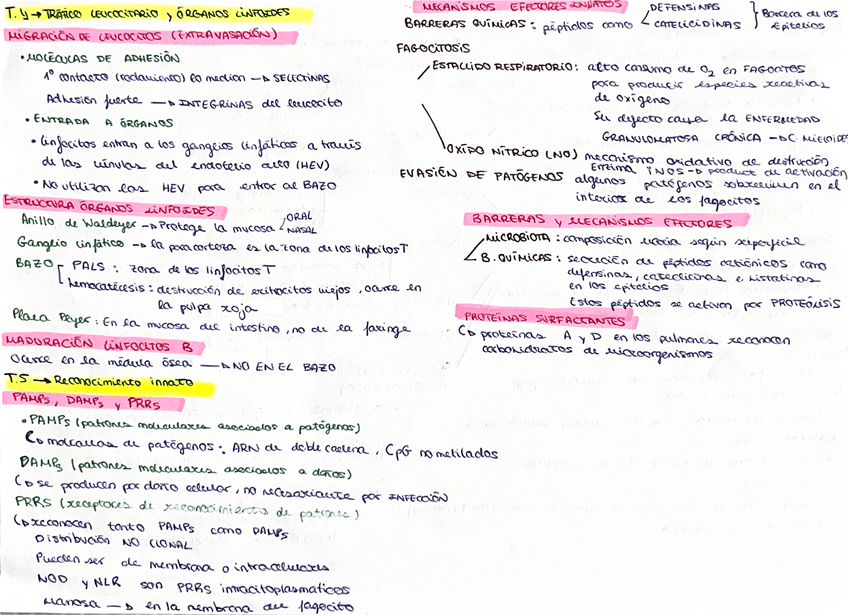 T.4 → TRÁFICO LEUCOCITARIO y ÓRGANOS LINFOIDES
MIGRACIÓN DE LEUCOCITOS (EXTRAVASACIÓN)
• MOLÉCULAS DE ADHESIÓN
1º contacto (rodamiento) lo median → SELECTINAS
Adhesión fuerte → INTEGRINAS del leucocito
• ENTRADA A ÓRGANOS
• Linfocitos entran a los ganglios linfáticos a través
de las vénulas del endotelio alto (HEV)
• No utilizan las HEV para entrar al BAZO
ESTRUCTURA ÓRGANOS LINFOIDES
Anillo de Waldeyer → Protege la mucosa ORAL
NASAL
Ganglio linfático → la paracorteza es la zona de los linfocitos T
BAZO PALS : zona de los linfocitos T
hemocatéresis : destrucción de eritrocitos viejos, ocurre en
la pulpa roja
Placa Peyer : En la mucosa del intestino, no de la faringe
MADURACIÓN LINFOCITOS B
Ocurre en la médula ósea → NO EN EL BAZO
T.5 → Reconocimiento innato
PAMPs, DAMPs y PRRs
• PAMPs (patrones moleculares asociados a patógenos)
↳ moléculas de patógenos : ARN de doble cadena, CpG no metilados
DAMPs (patrones moleculares asociados a daños)
↳ se producen por daño celular, no necesariante por INFECCIÓN
PRRs (receptores de reconocimiento de patrones)
↳ reconocen tanto PAMPs como DAMPs
Distribución NO CLONAL
Pueden ser de membrana o intracelulares
NOD y NLR son PRRs intracitoplasmáticos
Manosa → en la membrana del fagocito
MECANISMOS EFECTORES INNATOS
BARRERAS QUÍMICAS : péptidos como DEFENSINAS
CATELICIDINAS
Barrera de los
Epitelios
FAGOCITOSIS
ESTALLIDO RESPIRATORIO : alto consumo de O2 en FAGOCITOS
para producir especies reactivas
de oxígeno
Su defecto causa la ENFERMEDAD
GRANULOMATOSA CRÓNICA → DC MIELOIDES
OXÍDO NÍTRICO (NO) mecanismo oxidativo de destrución
Enzima iNOS → product de activación
EVASIÓN DE PATÓGENOS algunos patógenos sobreviven en el
interior de los fagocitos
BARRERAS y MECANISMOS EFECTORES
MICROBIOTA : composición varía según superficial
B. QUÍMICAS : secreción de péptidos catiónicos como
defensinas, catelicidinas e histatinas
en los epitelios
Estos péptidos se activan por PROTEÓLISIS
PROTEÍNAS SURFACTANTES
↳ proteínas A y D en los pulmones reconocen
carbohidratos de microorganismos